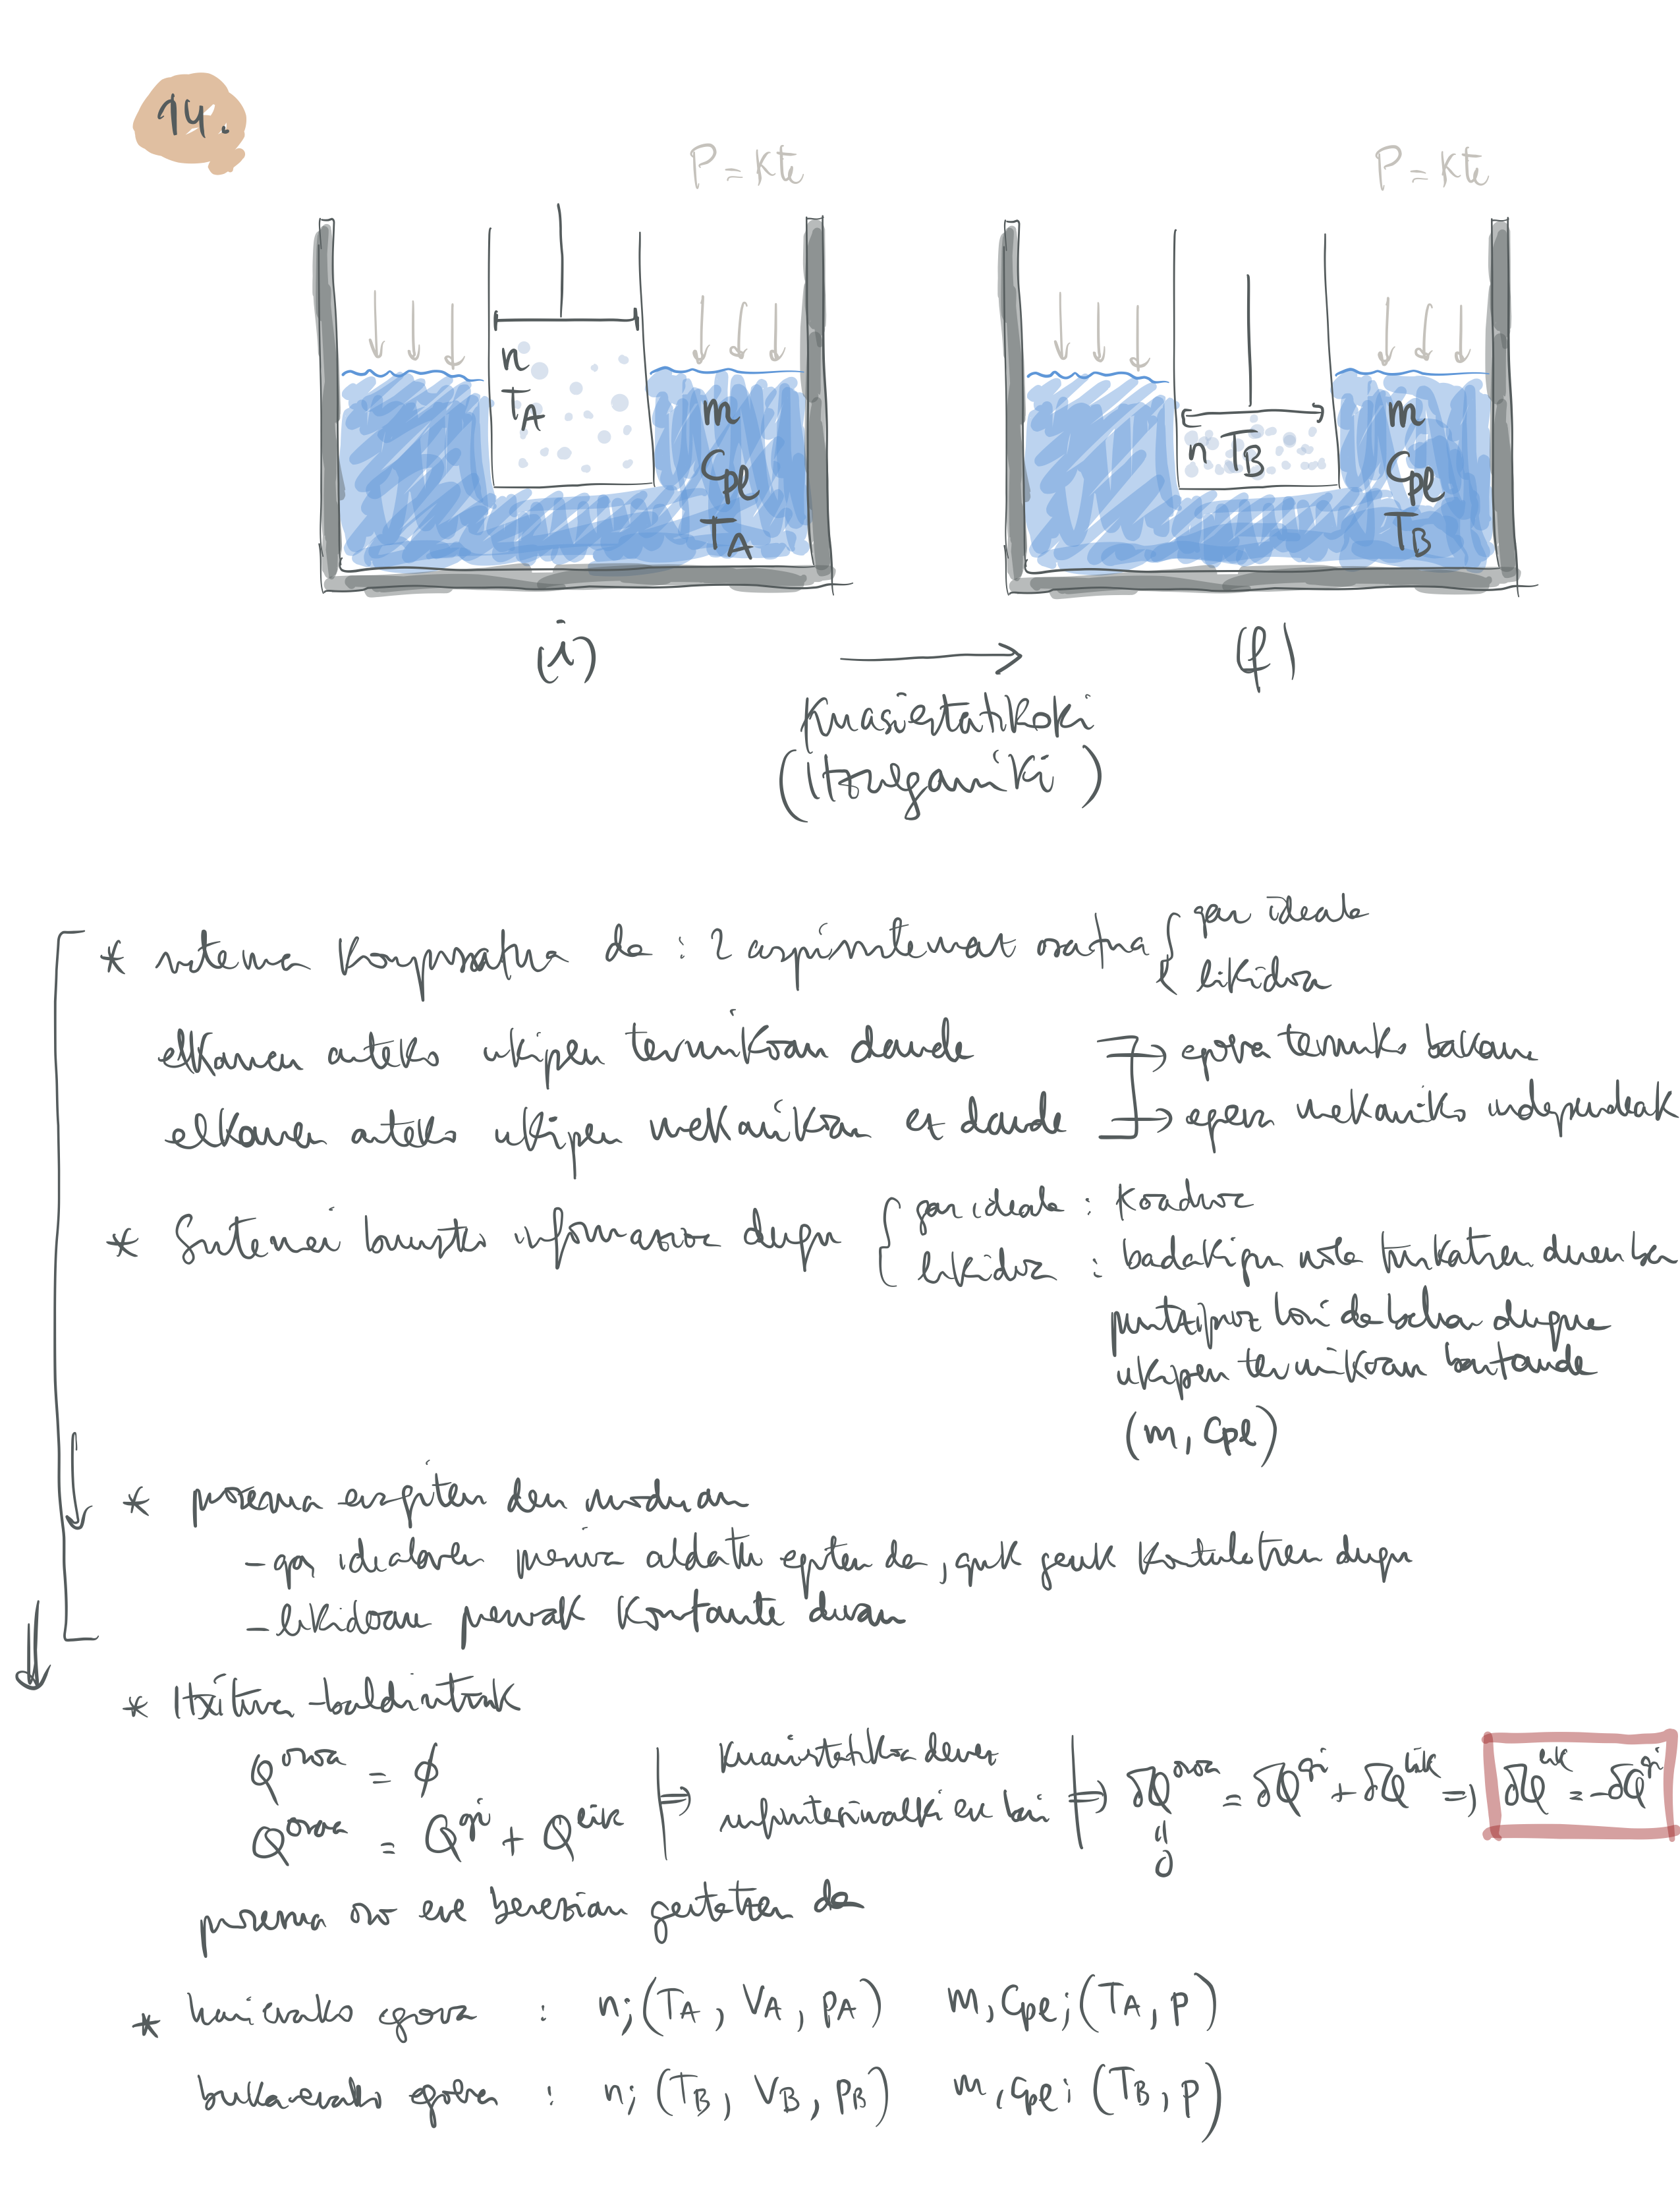 14.
P = kte
P = kte
n
TA
m
Cpl
TA
n TB
m
Cpl
TB
(i)
(f)
kuasiestatikoki
(itzulgarriki)
* sistema konposatua da : 2 azpisistemaz osatua { gas ideala
likidoa
elkarren arteko ukipen termikoan daude → egoera termiko bakarra
elkarren arteko ukipen mekanikoan ez daude → egoera mekaniko independeak
* Sistemei buruzko informazioa dugu { gas ideala : koadroa
likidoa : badakigu nola trukatzen duen bero
printzipioz hori da behar duguna
ukipen termikoan baitaude
(m, Cpl)
* prozesua eragiten den moduan
- gas idealaren presioa aldatu egiten da, guk geuk kontrolatzen dugu
- likidoaren presioak konstante dirau
* Itxitura-baldintzak
Q^osoa = ϕ
Q^osoa = Q^gi + Q^lik
⇒ kuasiestatikoa denez
infinitesimalki ere bai ⇒ δQ^osoa = δQ^gi + δQ^lik ⇒ δQ^lik = -δQ^gi
0
prozesua oso era berezian gertatzen da
* hasierako egoera : n; (TA, VA, pA) m, Cpl; (TA, p)
bukaerako egoera : n; (TB, VB, pB) m, Cpl; (TB, p)